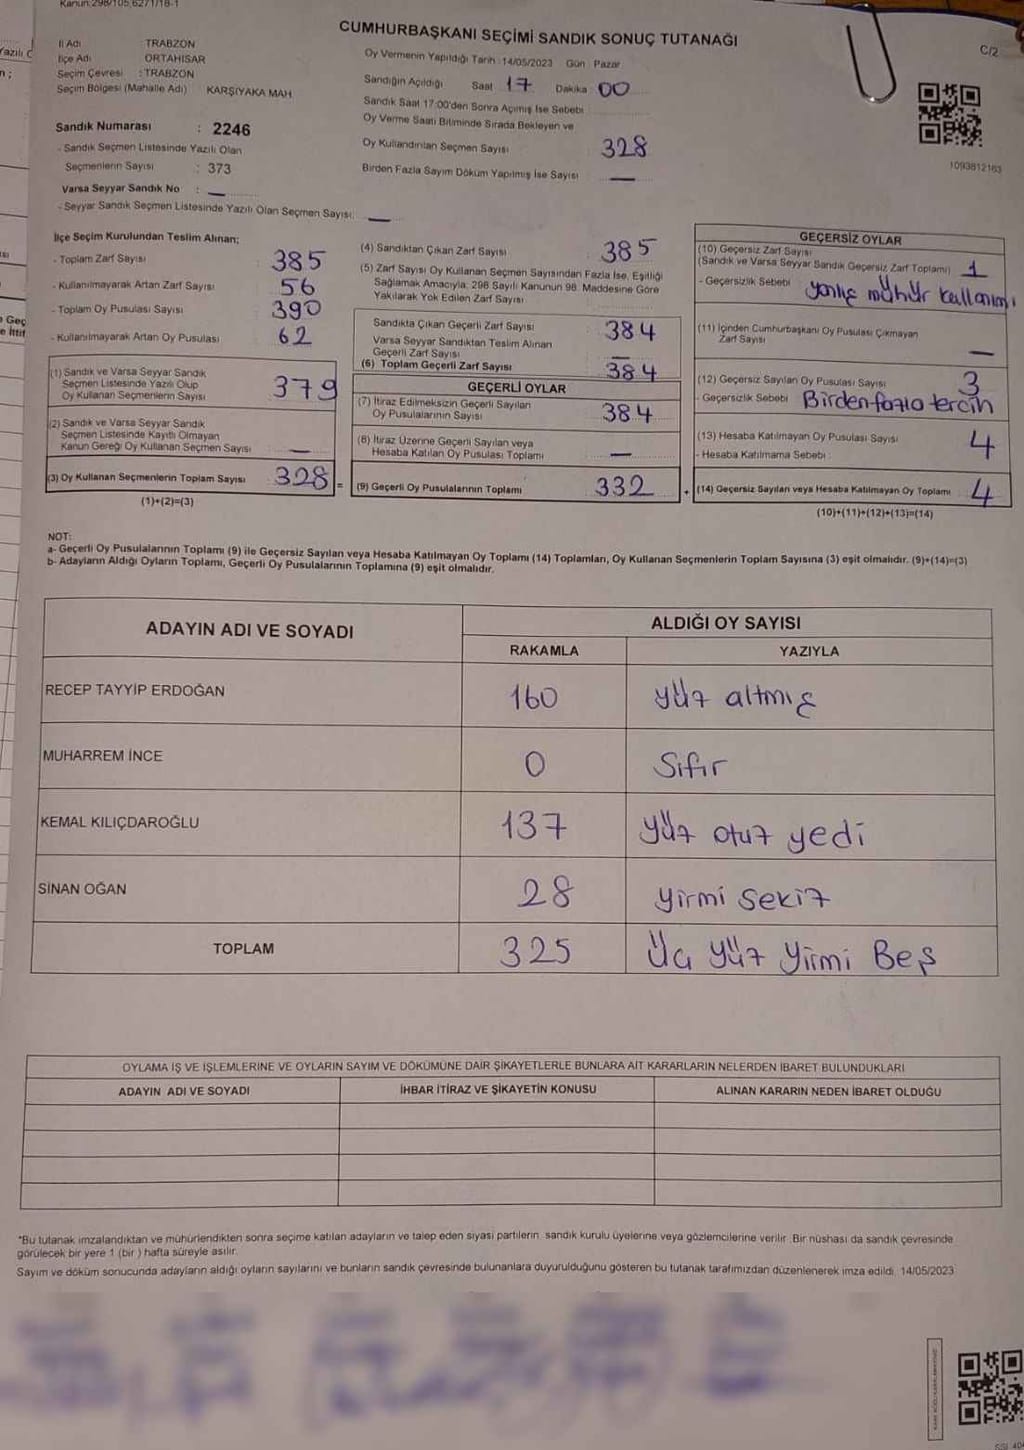 Kanun:298/105,6271/18-1
CUMHURBAŞKANI SEÇİMİ SANDIK SONUÇ TUTANAĞI
C/2
İl Adı : TRABZON
İlçe Adı : ORTAHİSAR
Seçim Çevresi : TRABZON
Seçim Bölgesi (Mahalle Adı) KARŞIYAKA MAH
Oy Vermenin Yapıldığı Tarih :14/05/2023 Gün Pazar
Sandığın Açıldığı Saat 17 Dakika 00
Sandık Saat 17:00'den Sonra Açılmış İse Sebebi
Oy Verme Saati Bitiminde Sırada Bekleyen ve
Oy Kullandırılan Seçmen Sayısı 328
Birden Fazla Sayım Döküm Yapılmış İse Sayısı —
1093812163
Sandık Numarası : 2246
- Sandık Seçmen Listesinde Yazılı Olan
Seçmenlerin Sayısı : 373
Varsa Seyyar Sandık No : —
- Seyyar Sandık Seçmen Listesinde Yazılı Olan Seçmen Sayısı: —
İlçe Seçim Kurulundan Teslim Alınan;
- Toplam Zarf Sayısı : 385
- Kullanılmayarak Artan Zarf Sayısı : 56
- Toplam Oy Pusulası Sayısı : 390
- Kullanılmayarak Artan Oy Pusulası : 62
(1) Sandık ve Varsa Seyyar Sandık
Seçmen Listesinde Yazılı Olup
Oy Kullanan Seçmenlerin Sayısı 379
(2) Sandık ve Varsa Seyyar Sandık
Seçmen Listesinde Kayıtlı Olmayan
Kanun Gereği Oy Kullanan Seçmen Sayısı —
(3) Oy Kullanan Seçmenlerin Toplam Sayısı 328 =
(1)+(2)=(3)
(4) Sandıktan Çıkan Zarf Sayısı : 385
(5) Zarf Sayısı Oy Kullanan Seçmen Sayısından Fazla İse, Eşitliği
Sağlamak Amacıyla, 298 Sayılı Kanunun 98. Maddesine Göre
Yakılarak Yok Edilen Zarf Sayısı
Sandıkta Çıkan Geçerli Zarf Sayısı : 384
Varsa Seyyar Sandıktan Teslim Alınan
Geçerli Zarf Sayısı —
(6) Toplam Geçerli Zarf Sayısı 384
GEÇERLİ OYLAR
(7) İtiraz Edilmeksizin Geçerli Sayılan
Oy Pusulalarının Sayısı 384
(8) İtiraz Üzerine Geçerli Sayılan veya
Hesaba Katılan Oy Pusulası Toplamı —
(9) Geçerli Oy Pusulalarının Toplamı 332
GEÇERSİZ OYLAR
(10) Geçersiz Zarf Sayısı
(Sandık ve Varsa Seyyar Sandık Geçersiz Zarf Toplamı) 1
- Geçersizlik Sebebi : yanlış mühür kullanımı
(11) İçinden Cumhurbaşkanı Oy Pusulası Çıkmayan
Zarf Sayısı —
(12) Geçersiz Sayılan Oy Pusulası Sayısı 3
- Geçersizlik Sebebi : Birden fazla tercih
(13) Hesaba Katılmayan Oy Pusulası Sayısı 4
- Hesaba Katılmama Sebebi :
+ (14) Geçersiz Sayılan veya Hesaba Katılmayan Oy Toplamı 4
(10)+(11)+(12)+(13)=(14)
NOT:
a- Geçerli Oy Pusulalarının Toplamı (9) ile Geçersiz Sayılan veya Hesaba Katılmayan Oy Toplamı (14) Toplamları, Oy Kullanan Seçmenlerin Toplam Sayısına (3) eşit olmalıdır. (9)+(14)=(3)
b- Adayların Aldığı Oyların Toplamı, Geçerli Oy Pusulalarının Toplamına (9) eşit olmalıdır.
ADAYIN ADI VE SOYADI ALDIĞI OY SAYISI
RAKAMLA YAZIYLA
RECEP TAYYİP ERDOĞAN 160 yüz altmış
MUHARREM İNCE 0 Sıfır
KEMAL KILIÇDAROĞLU 137 yüz otuz yedi
SİNAN OĞAN 28 yirmi sekiz
TOPLAM 325 Üç yüz Yirmi Beş
OYLAMA İŞ VE İŞLEMLERİNE VE OYLARIN SAYIM VE DÖKÜMÜNE DAİR ŞİKAYETLERLE BUNLARA AİT KARARLARIN NELERDEN İBARET BULUNDUKLARI
ADAYIN ADI VE SOYADI İHBAR İTİRAZ VE ŞİKAYETİN KONUSU ALINAN KARARIN NEDEN İBARET OLDUĞU
*Bu tutanak imzalandıktan ve mühürlendikten sonra seçime katılan adayların ve talep eden siyasi partilerin sandık kurulu üyelerine veya gözlemcilerine verilir. Bir nüshası da sandık çevresinde
görülecek bir yere 1 (bir) hafta süreyle asılır.
Sayım ve döküm sonucunda adayların aldığı oyların sayılarını ve bunların sandık çevresinde bulunanlara duyurulduğunu gösteren bu tutanak tarafımızdan düzenlenerek imza edildi. 14/05/2023